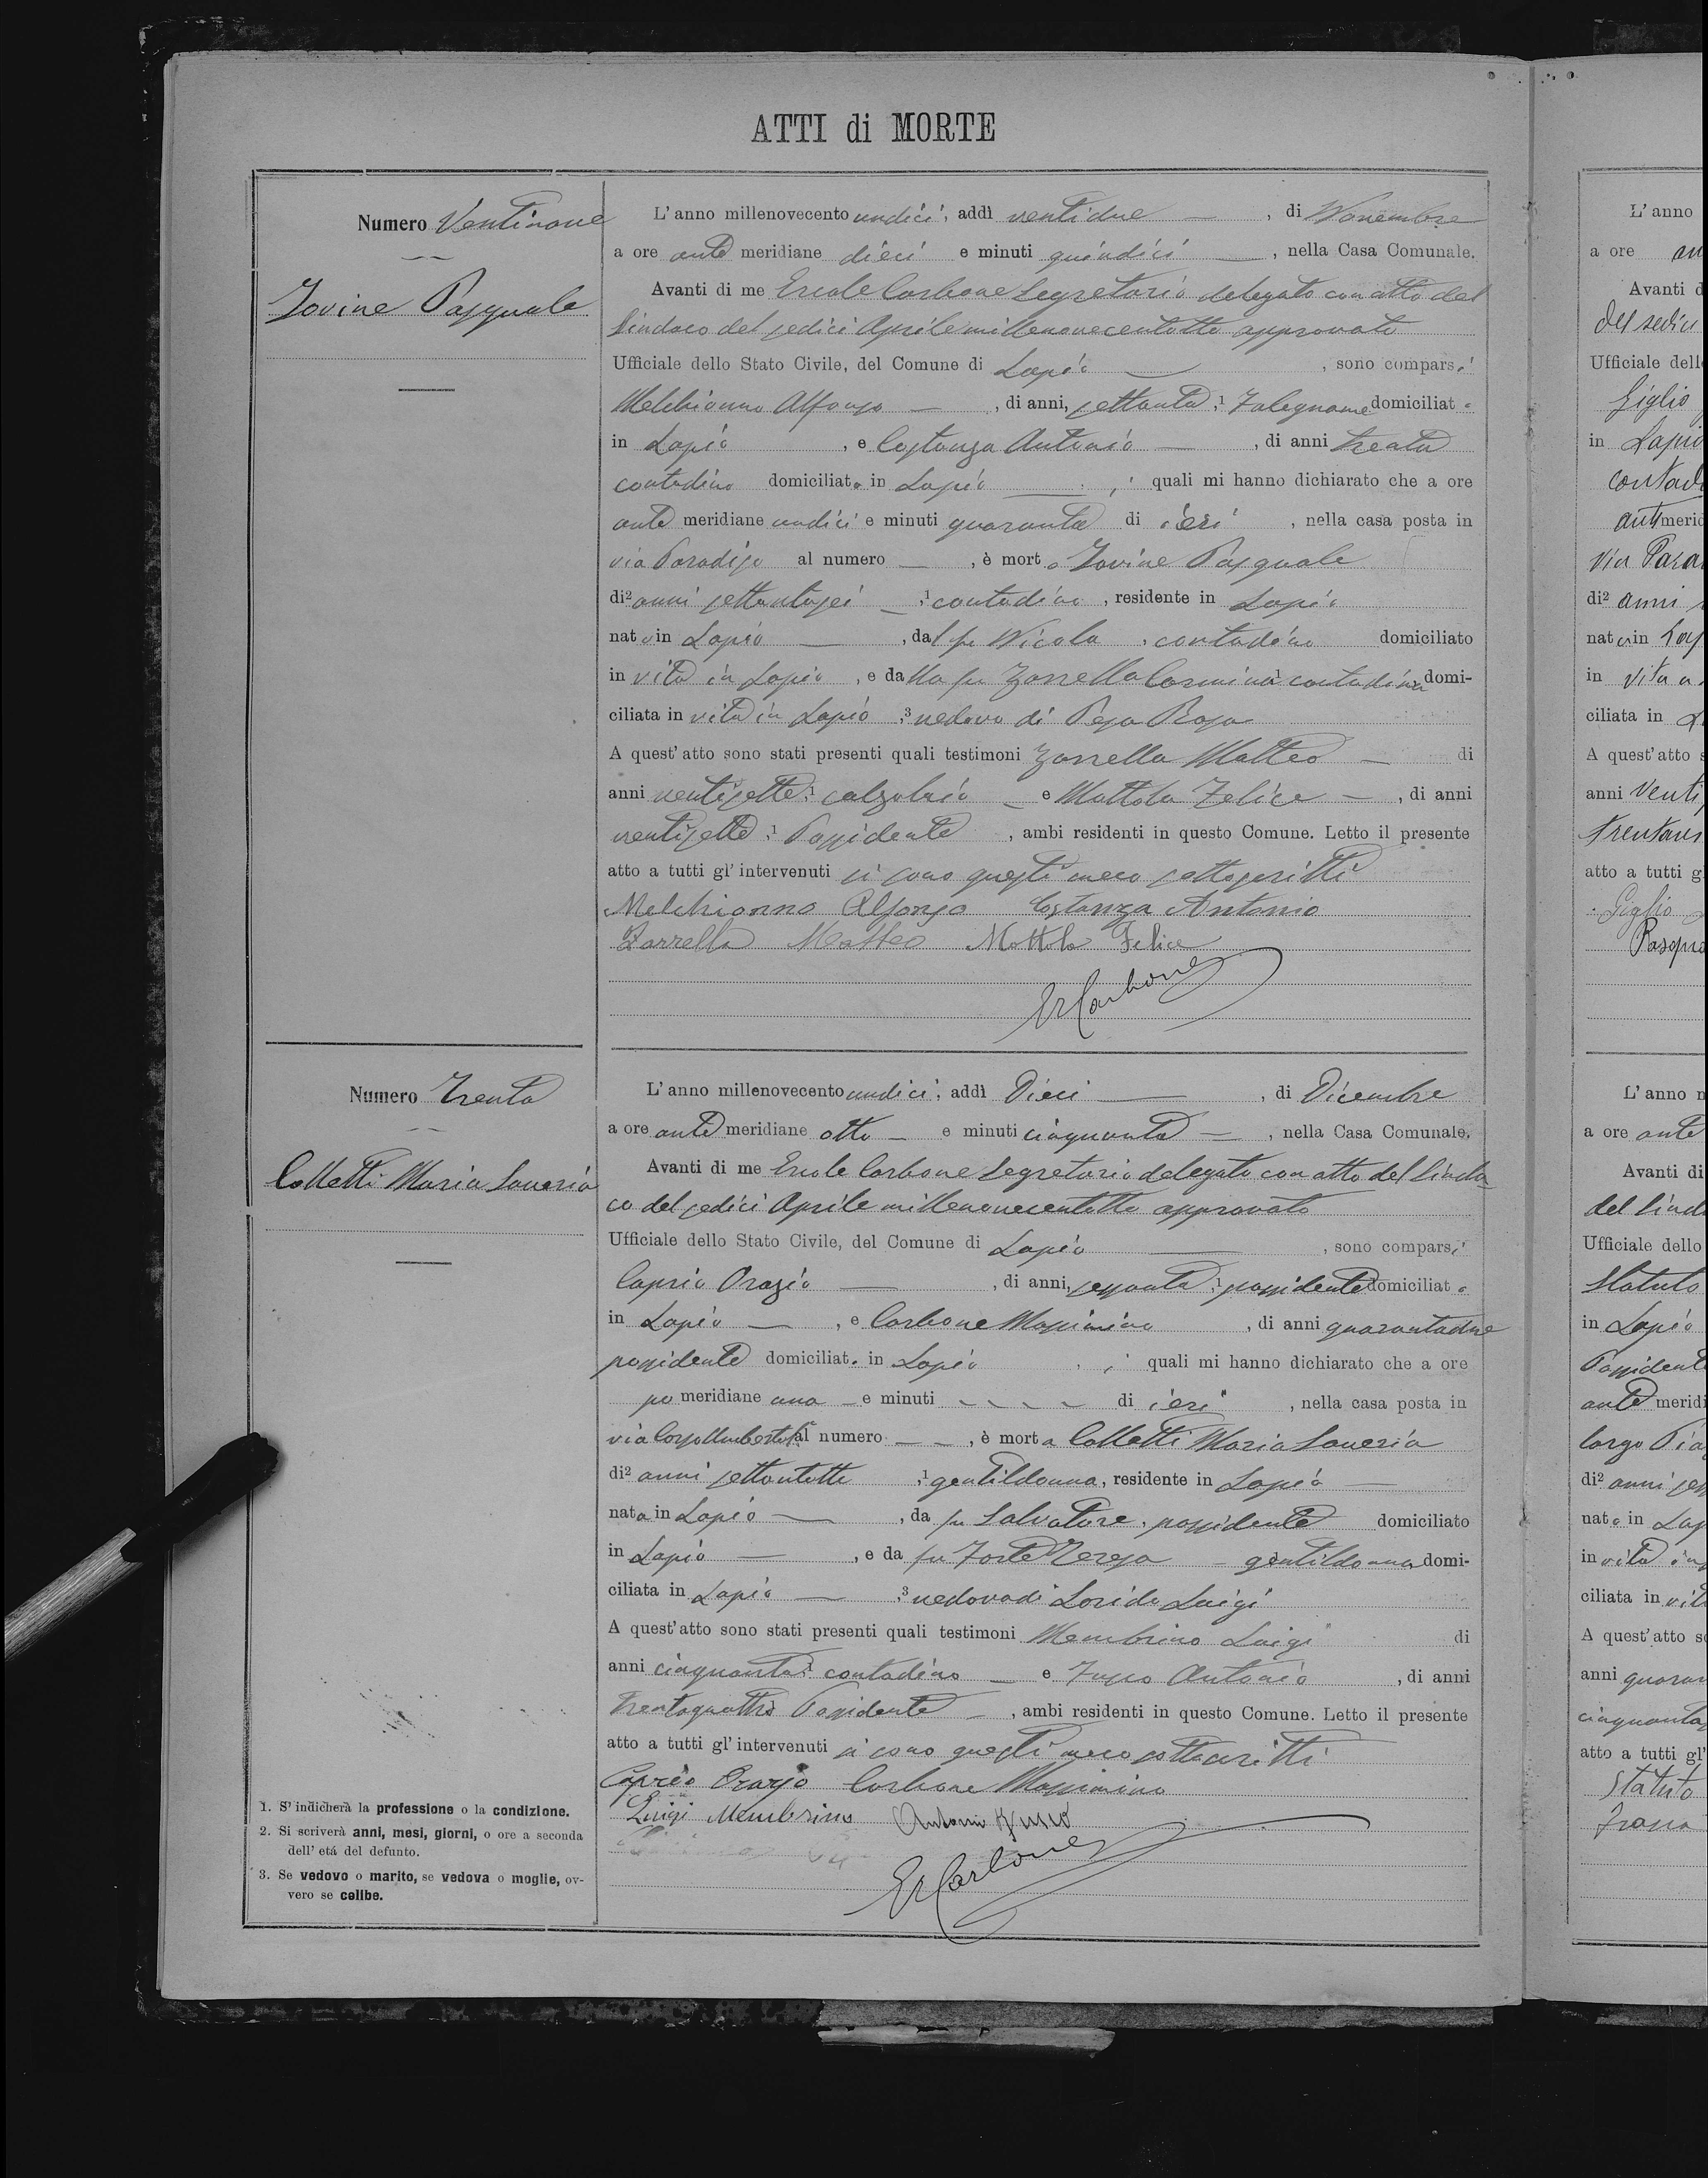 ATTI di MORTE
Numero Ventinove
Iovine Pasquale
L'anno millenovecento undici, addì ventidue, di Novembre
a ore ante meridiane dieci e minuti quindici, nella Casa Comunale.
Avanti di me Ercole Carbone Segretario delegato con atto del
Sindaco del sedici Aprile millenovecentotto approvato
Ufficiale dello Stato Civile, del Comune di Lapio, sono comparsi
Melchionno Alfonso, di anni, settanta,1 Falegname domiciliato
in Lapio, e Costanza Antonio, di anni trenta
contadino domiciliato in Lapio, i quali mi hanno dichiarato che a ore
ante meridiane undici e minuti quaranta di ieri, nella casa posta in
via Paradiso al numero —, è morto Iovine Pasquale
di2 anni settantasei,1 contadino, residente in Lapio
nato in Lapio, dal fu Nicola, contadino domiciliato
in vita in Lapio, e dalla fu Zarrella Carmina contadina domi-
ciliata in vita in Lapio,3 vedovo di Pepa Rosa
A quest'atto sono stati presenti quali testimoni Zarrella Matteo di
anni ventisette,1 calzolaio e Mottola Felice, di anni
ventisette,1 Possidente, ambi residenti in questo Comune. Letto il presente
atto a tutti gl'intervenuti si sono questi meco sottoscritti
Melchionno Alfonso Costanza Antonio
Zarrella Matteo Mottola Felice
ErCarbone
Numero Trenta
Colletti Maria Saveria
L'anno millenovecento undici, addì Dieci, di Dicembre
a ore ante meridiane otto e minuti cinquanta, nella Casa Comunale.
Avanti di me Ercole Carbone Segretario delegato con atto del Sinda
co del sedici Aprile millenovecentotto approvato
Ufficiale dello Stato Civile, del Comune di Lapio, sono comparsi
Caprio Orazio, di anni, sessanta,1 possidente domiciliato
in Lapio, e Carbone Massimino, di anni quarantadue
possidente domiciliato in Lapio, i quali mi hanno dichiarato che a ore
po meridiane una e minuti — di ieri, nella casa posta in
via Corso Umberto Iº al numero —, è morta Colletti Maria Saveria
di2 anni settantotto,1 gentildonna, residente in Lapio
nata in Lapio, da fu Salvatore, possidente domiciliato
in Lapio, e da fu Forte Teresa gentildonna domi-
ciliata in Lapio,3 vedova di Luigi
A quest'atto sono stati presenti quali testimoni Membrino Luigi di
anni cinquanta,1 contadino e Antonio, di anni
trentaquattro Possidente, ambi residenti in questo Comune. Letto il presente
atto a tutti gl'intervenuti si sono questi meco sottoscritti
Caprio Orazio Carbone Massimino
Luigi Membrino Antonio
ErCarbone
1. S'indicherà la professione o la condizione.
2. Si scriverà anni, mesi, giorni, o ore a seconda
dell'etá del defunto.
3. Se vedovo o marito, se vedova o moglie, ov-
vero se celibe.
L'anno
a ore
Avanti d
del sedici
Ufficiale dell
Giglio
in Lapio
contad
antimerid
Via Para
di2 anni
nato in Lap
in vita
ciliata in
A quest'atto s
anni Venti
atto a tutti g
Giglio
Pasqua
L'anno n
a ore ante
Avanti di
del Sind
Ufficiale dello
Statuto
in Lapio
Possident
ante meridi
largo Pia
di2 anni
nato in Lap
in vita in
ciliata in vit
A quest'atto so
anni quaran
cinquanta
atto a tutti gl'
Statuto